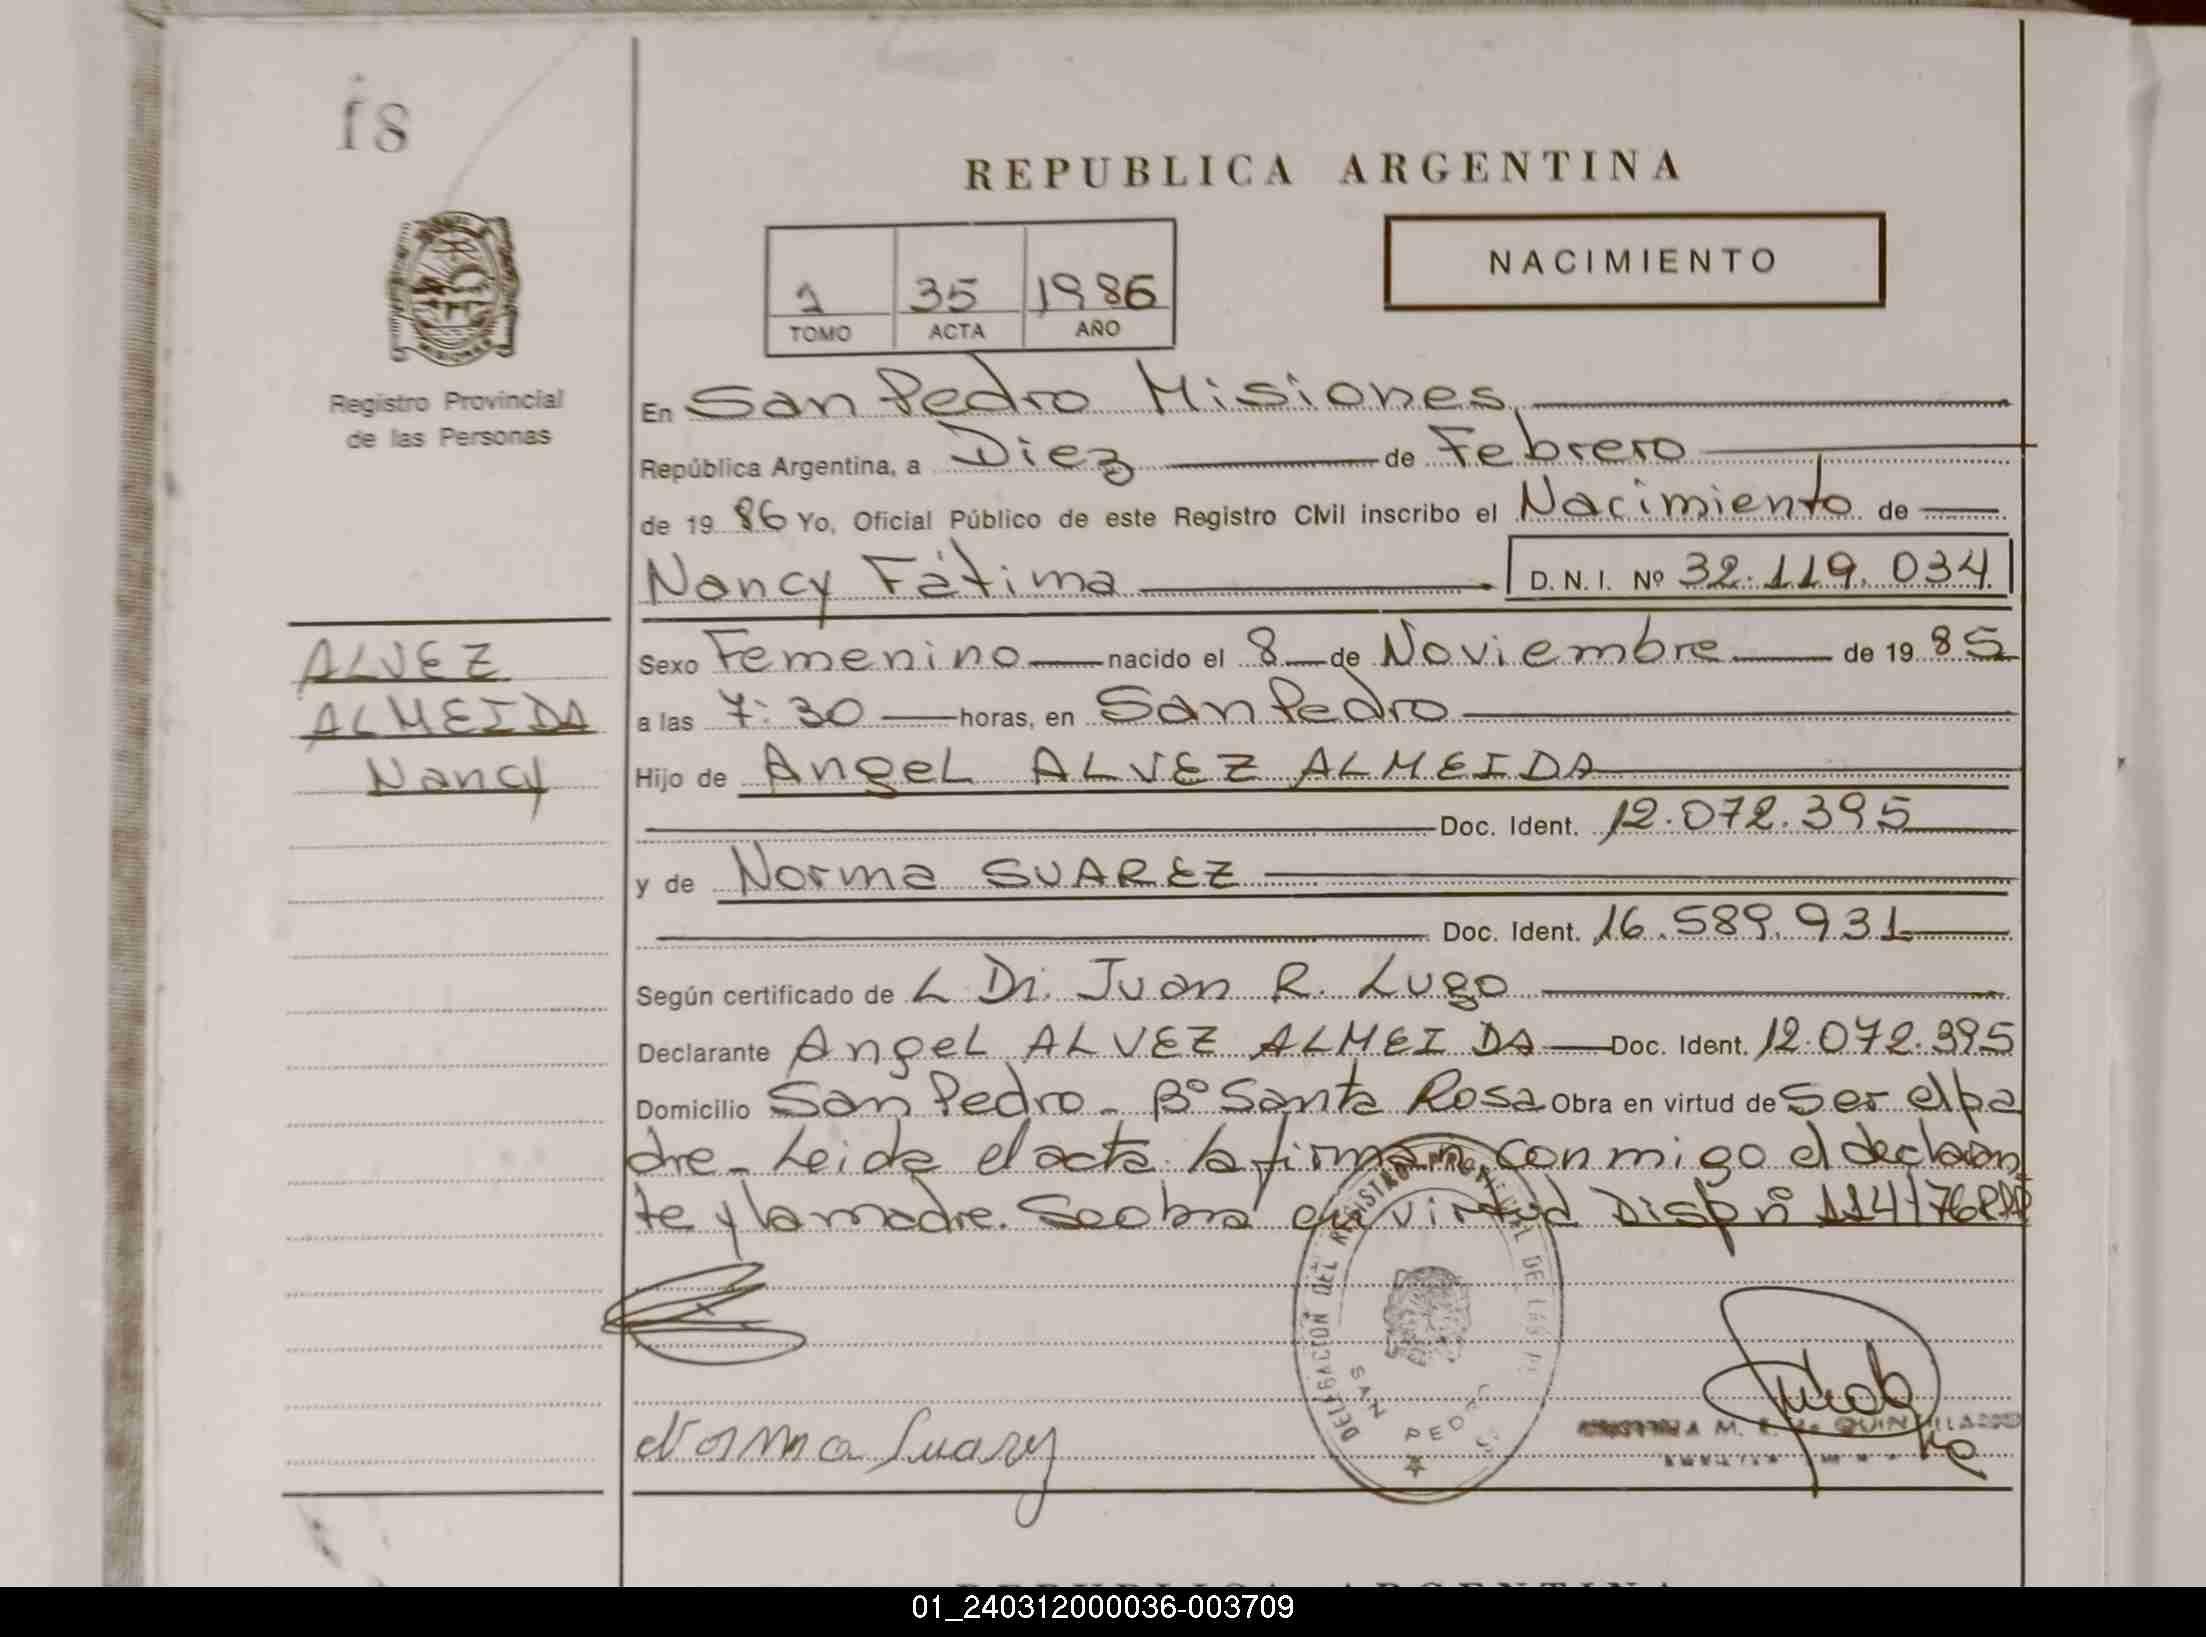 18
REPUBLICA ARGENTINA
NACIMIENTO
1 35 1986
TOMO ACTA AÑO
MISIONES
Registro Provincial
de las Personas
En San Pedro Misiones
República Argentina, a Diez de Febrero
de 19 86 Yo, Oficial Público de este Registro Civil inscribo el Nacimiento de
Nancy Fátima D.N.I. Nº 32.119.034
ALVEZ
ALMEIDA
Nancy
Sexo Femenino nacido el 8 de Noviembre de 19 85
a las 7:30 horas, en San Pedro
Hijo de Angel ALVEZ ALMEIDA
Doc. Ident. 12.072.395
y de Norma SUAREZ
Doc. Ident. 16.589.931
Según certificado de L Dr. Juan R. Lugo
Declarante Angel ALVEZ ALMEIDA Doc. Ident. 12.072.395
Domicilio San Pedro - Bº Santa Rosa Obra en virtud de Ser el pa
dre - Leida el acta la firman conmigo el declaran
te y la madre. Se obra en virtud Disp nº 114/76
DELEGACION DEL REGISTRO PROVINCIAL DE LAS
SAN PEDRO
Norma Suarez
REPUBLICA ARGENTINA
01_240312000036-003709